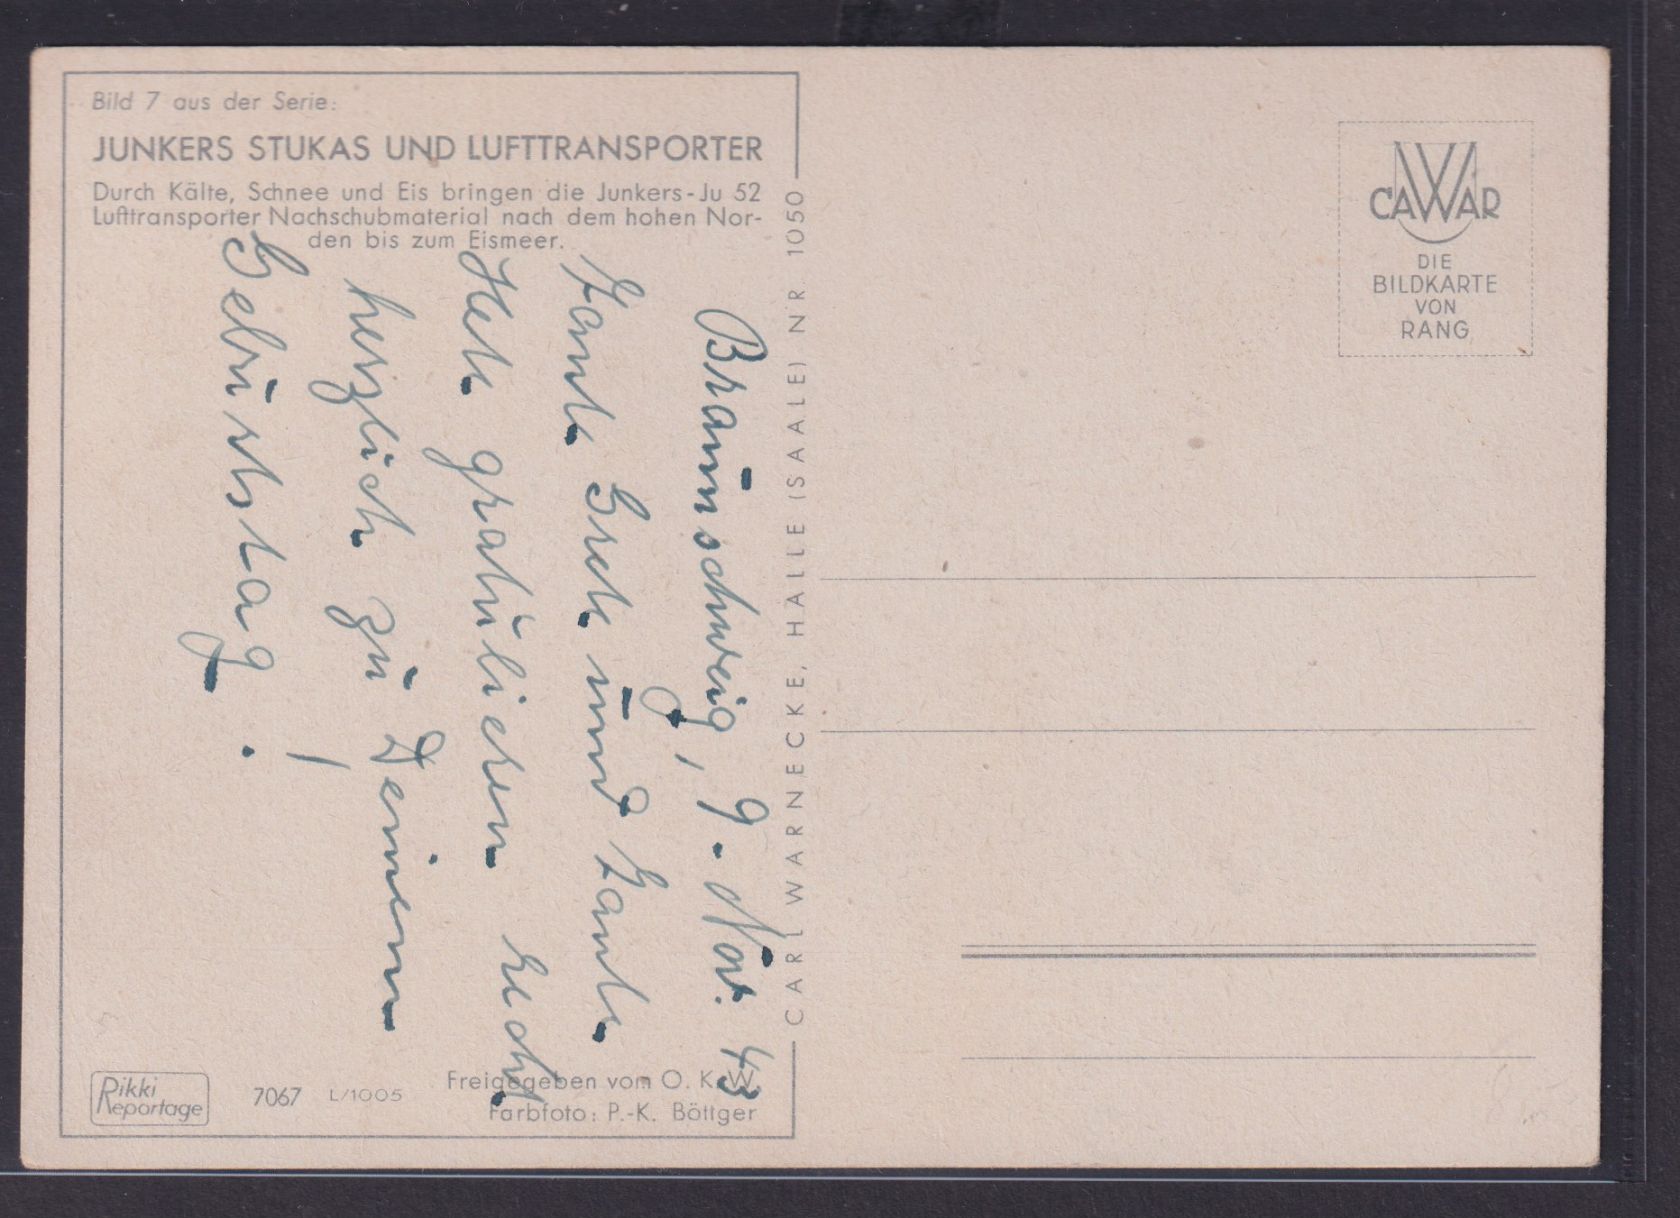 Bild 7 aus der Serie:
JUNKERS STUKAS UND LUFTTRANSPORTER
Durch Kälte, Schnee und Eis bringen die Junkers-Ju 52
Lufttransporter Nachschubmaterial nach dem hohen Nor-
den bis zum Eismeer.
Braunschweig, 9. Nov. 43
Tante Grete und Tante
Hete gratulieren recht
herzlich zu Deinem
Geburtstag!
Rikki
Reportage
7067 L/1005
Freigegeben vom O. K. W.
Farbfoto: P.-K. Böttger
CARL WARNECKE, HALLE (SAALE) NR 1050
CAWAR
DIE
BILDKARTE
VON
RANG